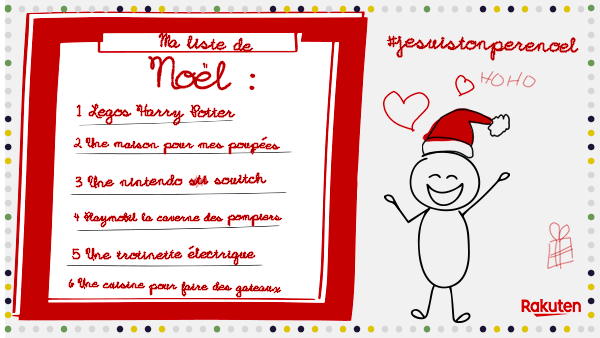 Ma liste de
Noël :
1 Legos Harry Potter
2 Une maison pour mes poupées
3 Une nintendo souitch
4 Playmobil la caverne des pompiers
5 Une trotinette électrique
6 Une cuisine pour faire des gateaux
#jesuistonperenoel
HOHO
Rakuten